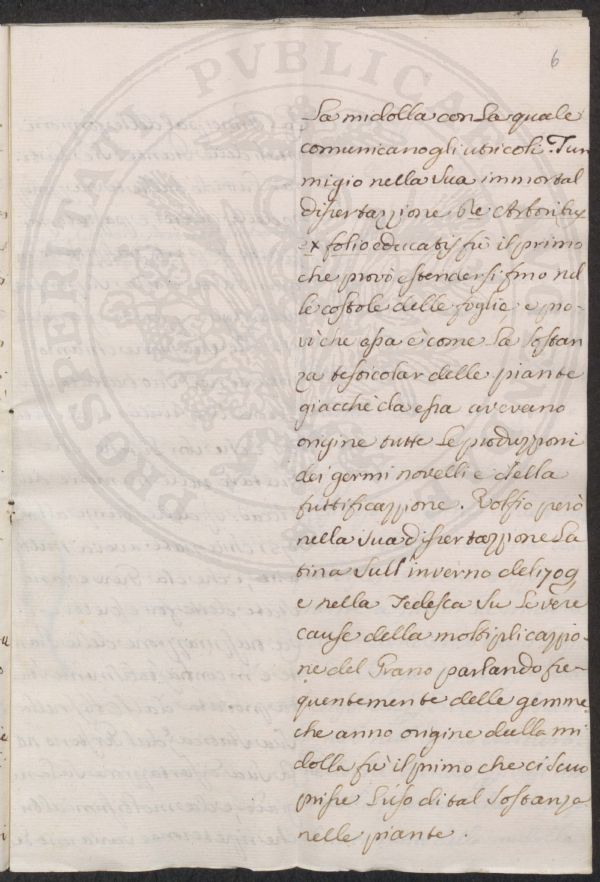 6
La midolla con la quale
comunicano gli utricoli. Tum
migio nella sua immortal
dissertazzione De Arboribus
ex folio educatis fù il primo
che provò estendersi fino nel
le costole delle foglie e pro-
vò che essa è come la sostan
za testicolar delle piante
giacchè da essa avevano
origine tutte le produzzioni
dei germi novelli e della
fruttificazzione. Volfio però
nella sua dissertazzione La
tina sull'inverno del 1709
e nella Tedesca su le vere
cause della moltiplicazzio-
ne del Grano parlando fre-
quentemente delle gemme
che anno origine dalla mi
dolla fù il primo che ci scuo
prisse l'uso di tal sostanza
nelle piante.
PROSPERITATI PVBLICAE